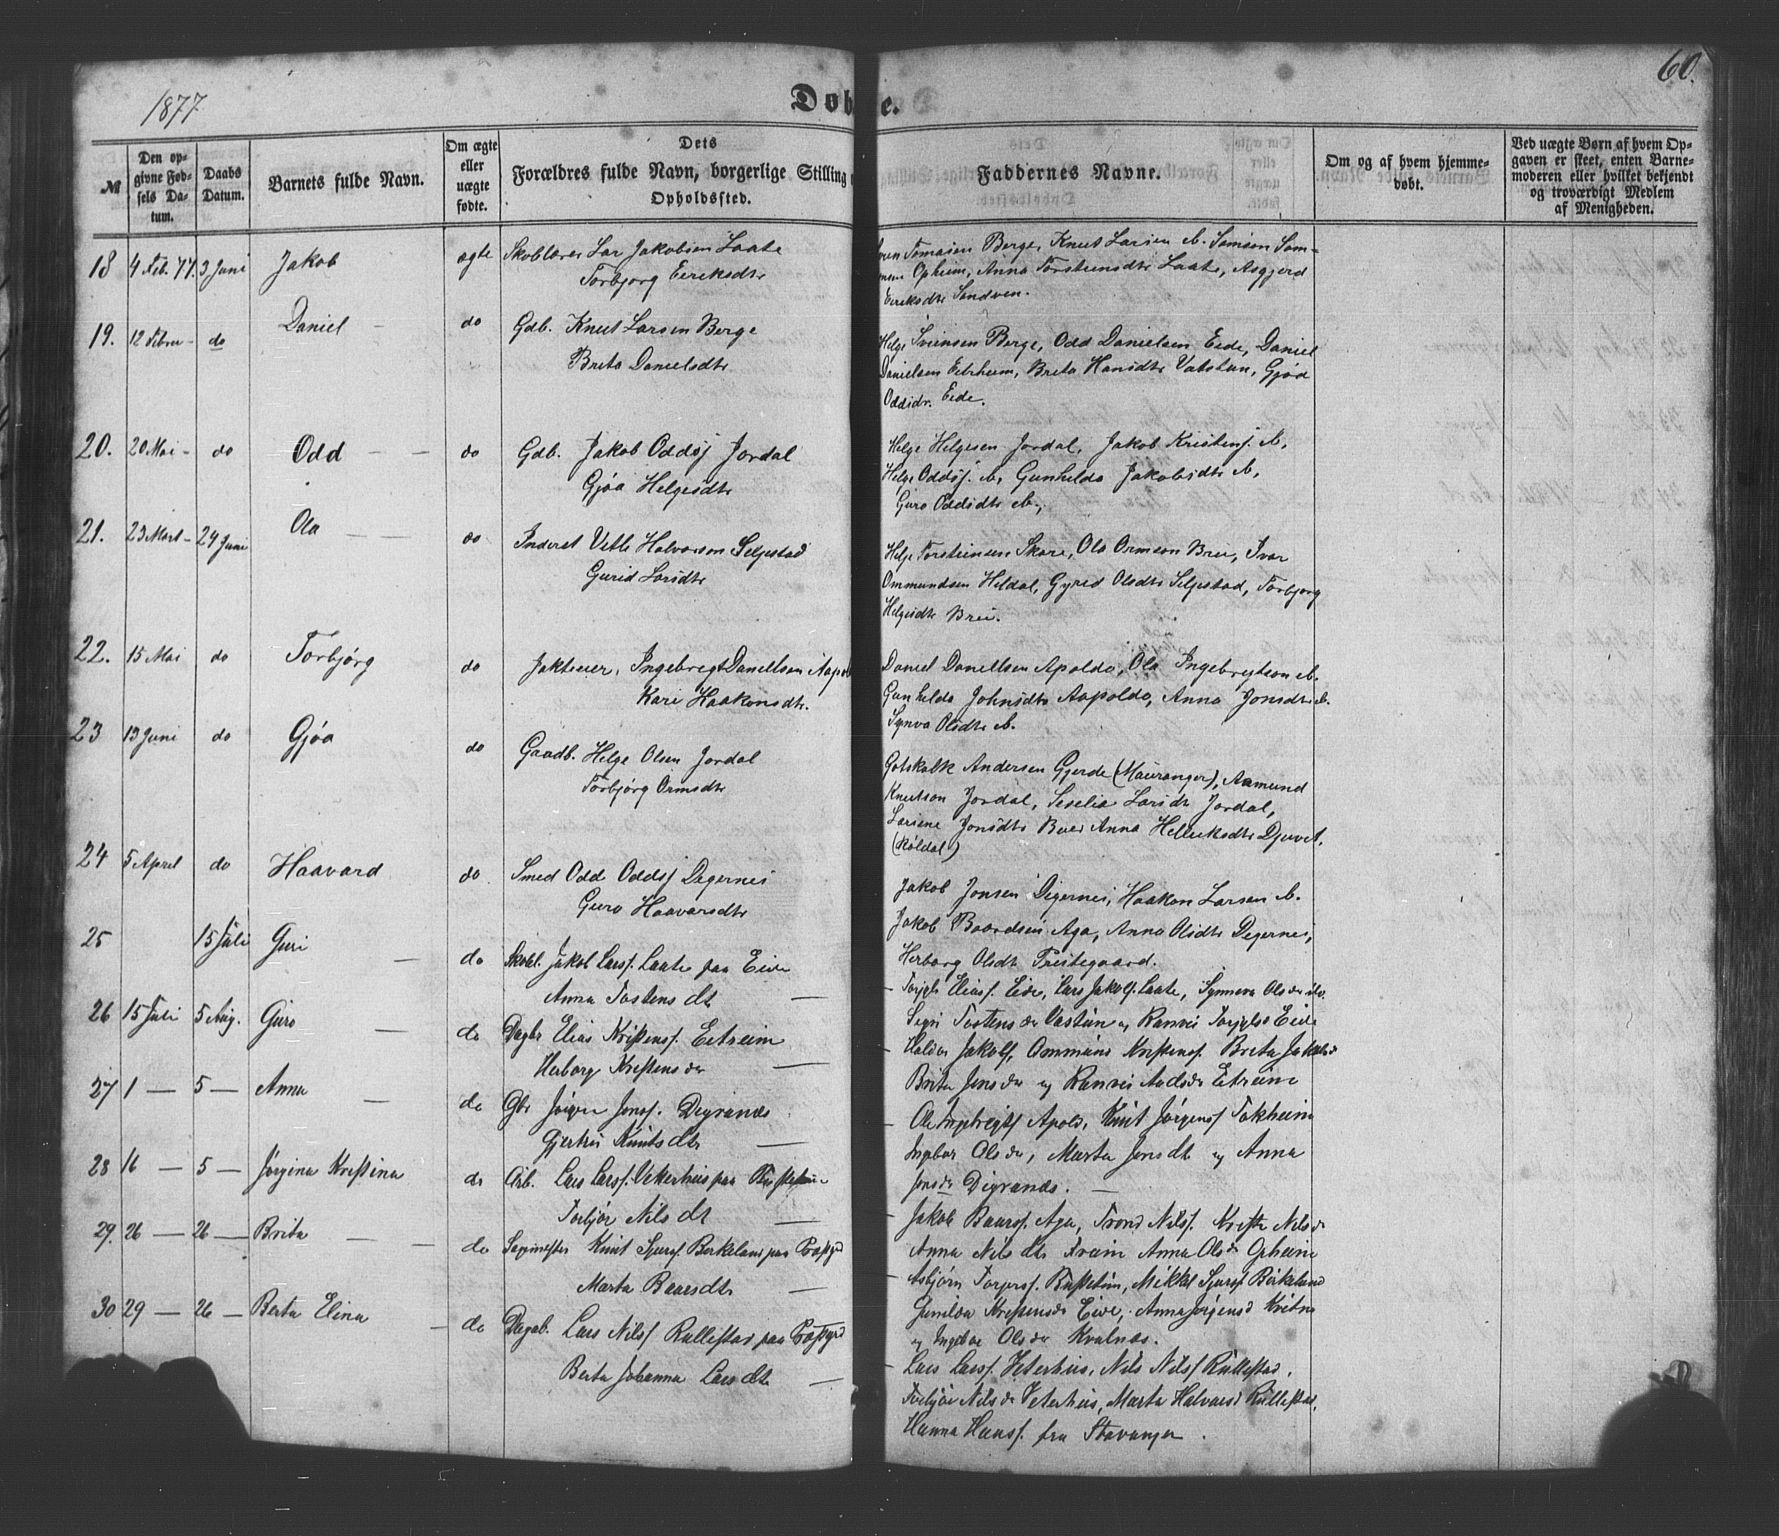 1877
60.
Døbte.
№
Den opgivne Fødsels Datum.
Daabs Datum.
Barnets fulde Navn.
Om ægte eller uægte fødte.
Dets Forældres fulde Navn, borgerlige Stilling
Opholdssted.
Faddernes Navne.
Om og af hvem hjemmedøbt.
Ved uægte Børn af hvem Opgaven er skeet, enten Barnemoderen eller hvilket bekjendt og troværdigt Medlem af Menigheden.
18 4 Feb. 77. 3 Juni Jakob ægte Skolelærer Lar Jakobsen Laate
Torbjorg Eereksdtr
Tomasen Berge, Knut Larsen ib. Samson Sam=
Opheim, Anna Torsteinsdtr Laate, Asgjerd
Eireksdtr Sandven.
19. 12 Febru - do Daniel - do Gdb. Knut Larsen Berge
Brita Danielsdtr
Helge Sveinsen Berge, Odd Danielsen Eide, Daniel
Danielsen Eitrheim, Brita Hansdtr Vatstun, Gjøa
Oddsdr. Eide.
20. 20 Mai - do Odd - - do Gdb. Jakob Oddsj Jordal
Gjøa Helgesdtr
Helge Helgesen Jordal, Jakob Kristensj. ib,
Helge Oddsj. ib, Gunhilda Jakobsdtr ib,
Guro Oddsdtr ib.,
21. 23 Mart - 24 Juni Ola - - do Inderst Vetle Halvorson Selgestad
Gurid Larsdtr
Helge Torsteinsen Skare, Ola Ormson Brei, Ivar
Ommundsen Hildal, Gyrid Olsdtr Selgestad, Torbjorg
Helgesdtr Brei.
22. 15 Mai do Torbjørg do Jakteier, Ingebregt Danielson Aapol
Kari Haakonsdtr.
Daniel Danielsen Apolda, Ola Ingebregtson ib.
Gunhilda Johnsdtr Aapoldo, Anna Jonsdtr ib.
Synva Olsdtr ib.
23 13 Juni do Gjøa do Gaadb. Helge Olsen Jordal
Torbjørg Ormsdtr
Gotskalk Andersen Gjerde (Mauranger), Aamund
Knutson Jordal, Seselia Larsdt Jordal,
Jonsdtr Anna Djuvet,
(Røldal)
24 5 April do Haavard do. Smed Odd Oddsj Degernes
Guro Haavarsdtr
Jakob Jonsen Degernes, Haakon Larsen ib.
Jakob Baardsen Aga, Anna Olsdtr Degernes,
Herborg Olsdt Freitegaard.
25 15 Juli Guri - do Skoll. Jakob Larsf. Laate paa Eide
Anna Tostens dt -
- Torgils Eliasf. Eide, Lars Jakobsf. Laate, Synneva Olsdr
Segri Tostens dr Vastun og Ranvei Torgilsd Eide
26 15 Juli 5 Aug. Guro - do Dagbr Elias Kristensf. Eitreim
Herborg Kristensdr -
- Haldor Jakobsf, Ommund Kristensf. Brita Jakobsd
Brita Jonsdr og Ranvei Aadsdr Eitreim
27 1 - 5 - Anna - do Gbr Jørgen Jonsf. Digranes
Gjertru Knuts dt. -
Ole Ingebregtsf Apold, Knut Jørgensf Tokheim
Ingbor Olsdr, Marta Jonsdt og Anna
Jonsdr Digranes. -
28 16 - 5 - Jørgina Kristina do Arb. Lars Larsf. Veterhus paa
Torbjør Nils dt -
- Jakob Baarsf. Aga, Trond Nilsf. Nilsdr
Anna Nils dt Anna Olsdr Opheim
29. 26 - 26 - Brita - - do Knut Sjursf Berkeland paa
Marta Baarsdt -
- Asbjørn Torgersf. Bustetun, Mikkel Sjursf Birkeland
Gunilda Kristensdr Eide, Anna Jørgensd
og Ingebor Olsdr Kvalnes.
30 29 - 26 - Berta Elina - do Dagab. Lars Nilsf Rullestad paa
Berta Johanna Larsdt -
- Lars Larsf. Veterhus, Nils Nilsf Rullestad,
Torbjør Nilsdr Veterhus, Marta Halvarsd Rullestad,
Hanna Hansf. fra Stavanger.